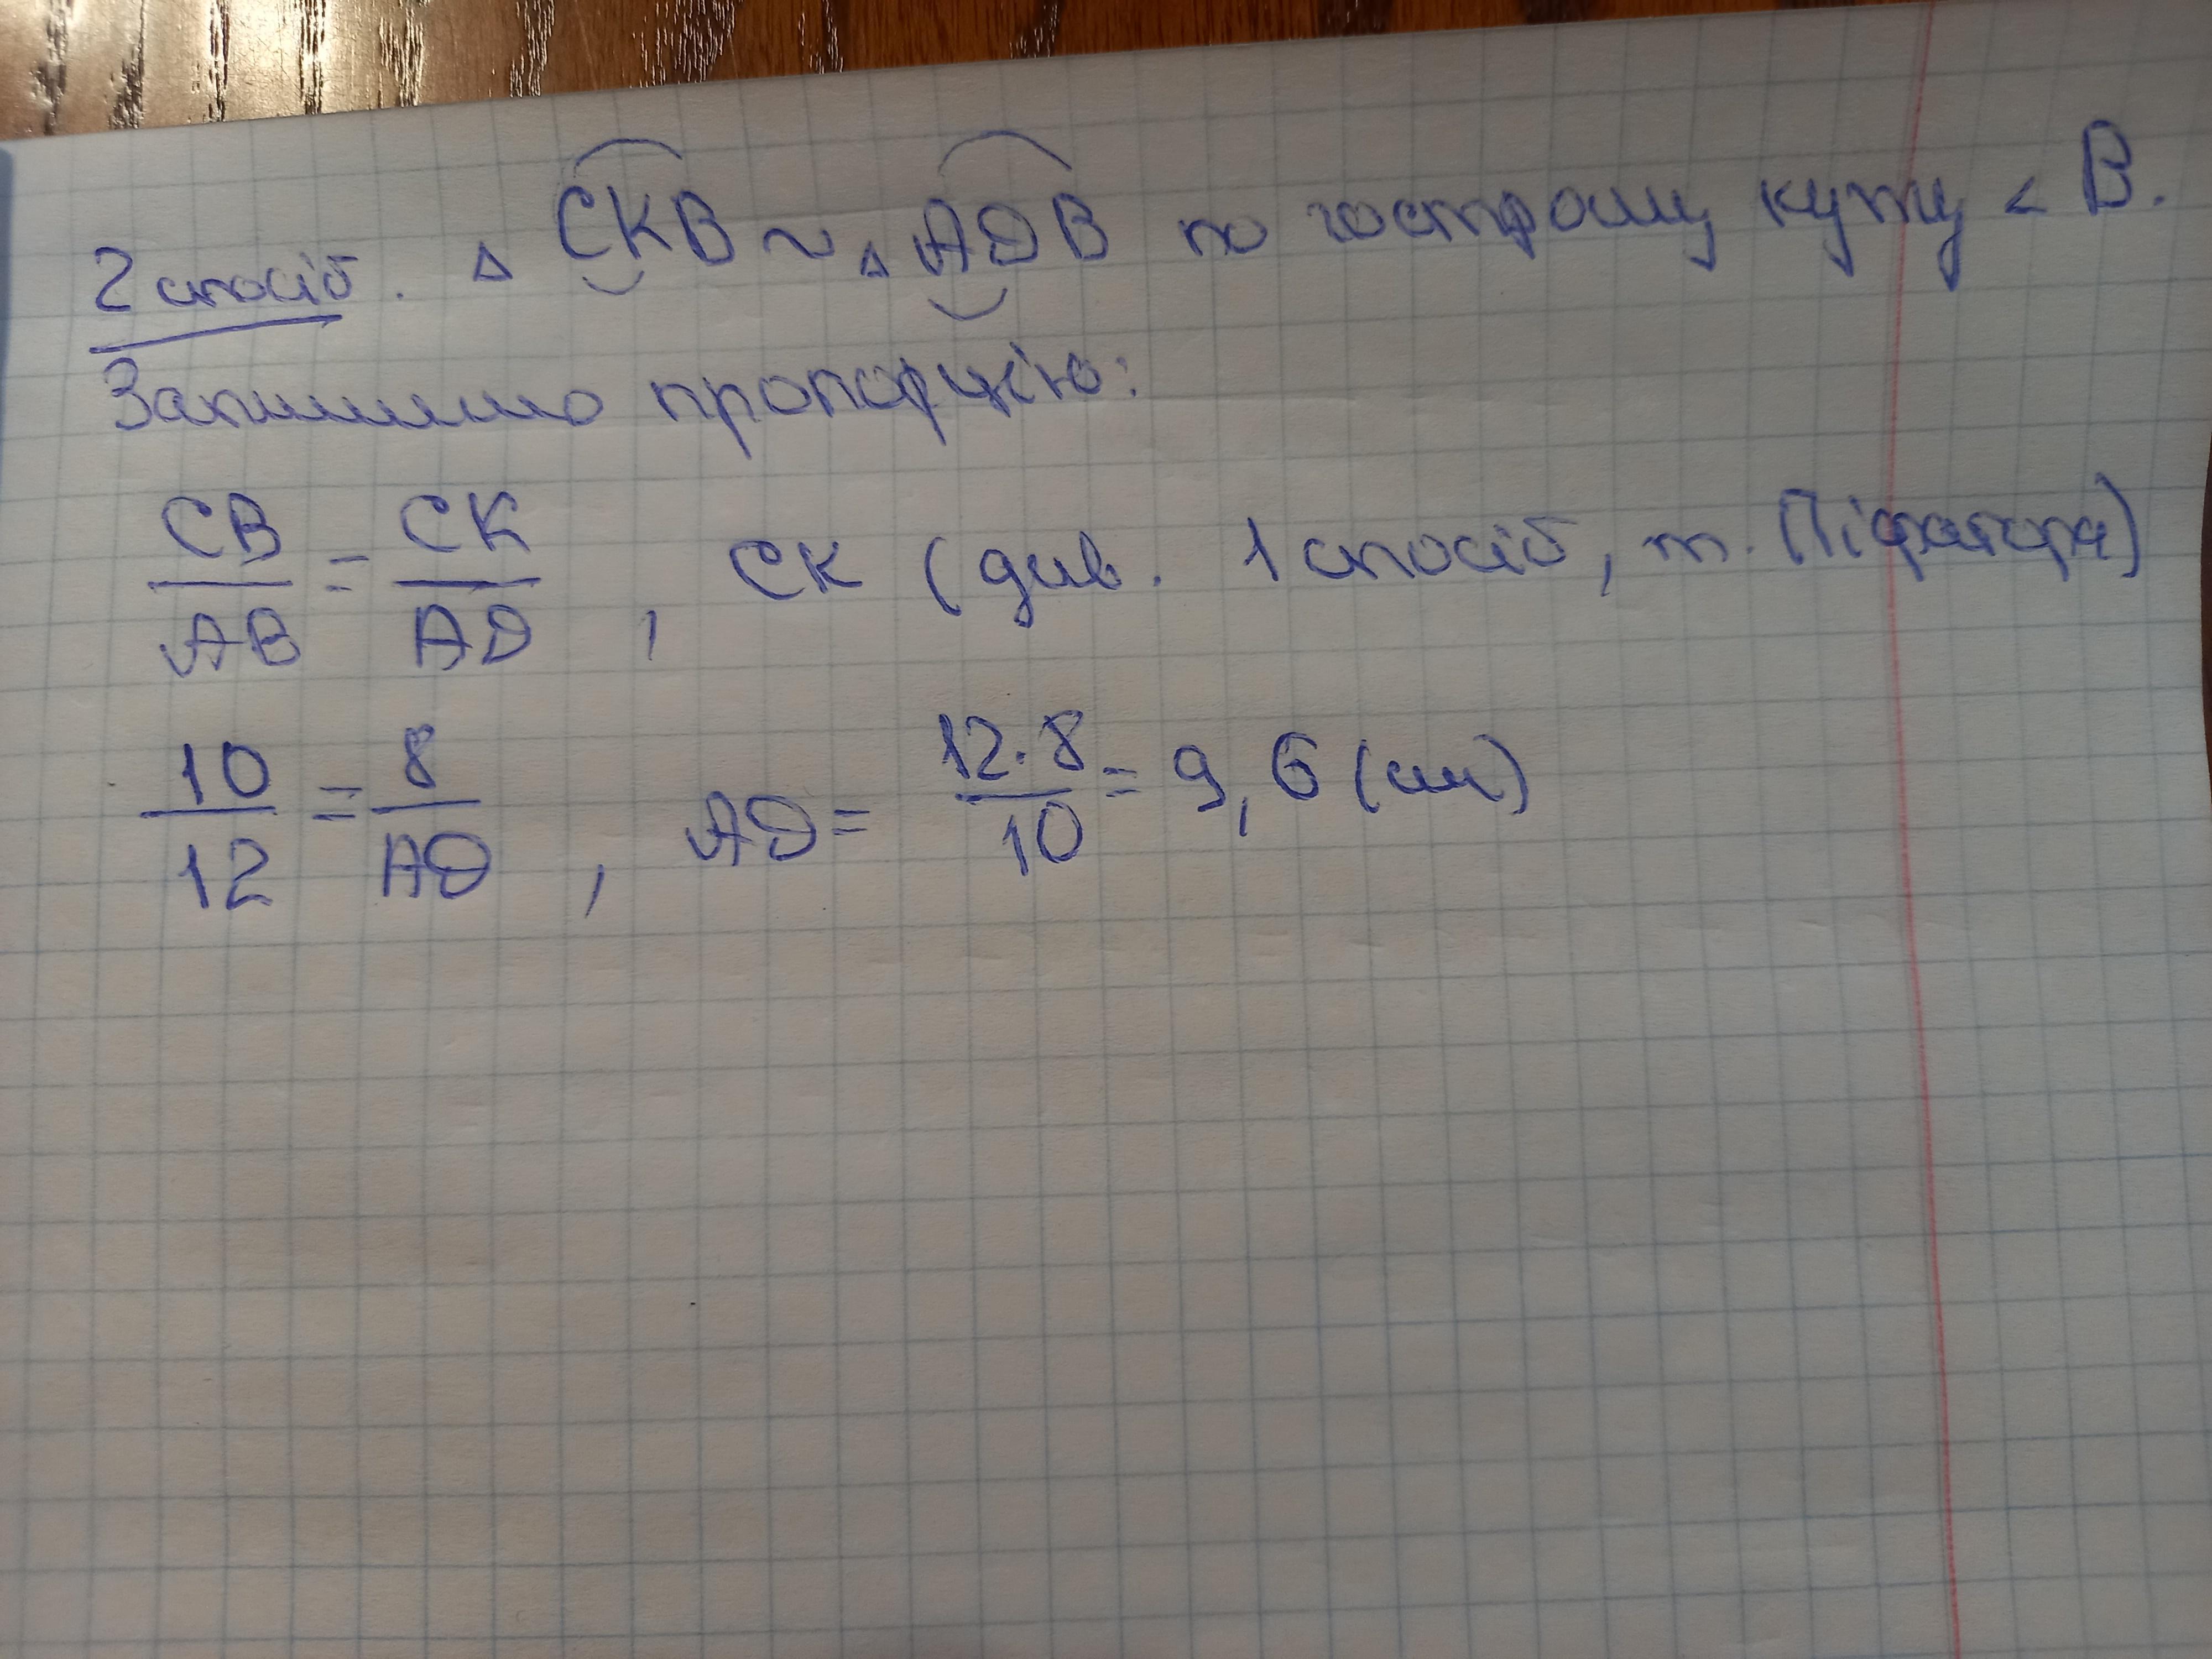 2 спосіб. Δ CKB ~ Δ ADB по гострому куту < B.
Запишемо пропорцію:
CB/AB = CK/AD , CK (див. 1 спосіб, т. Піфагора)
10/12 = 8/AD , AD = 12·8/10 = 9,6 (см)